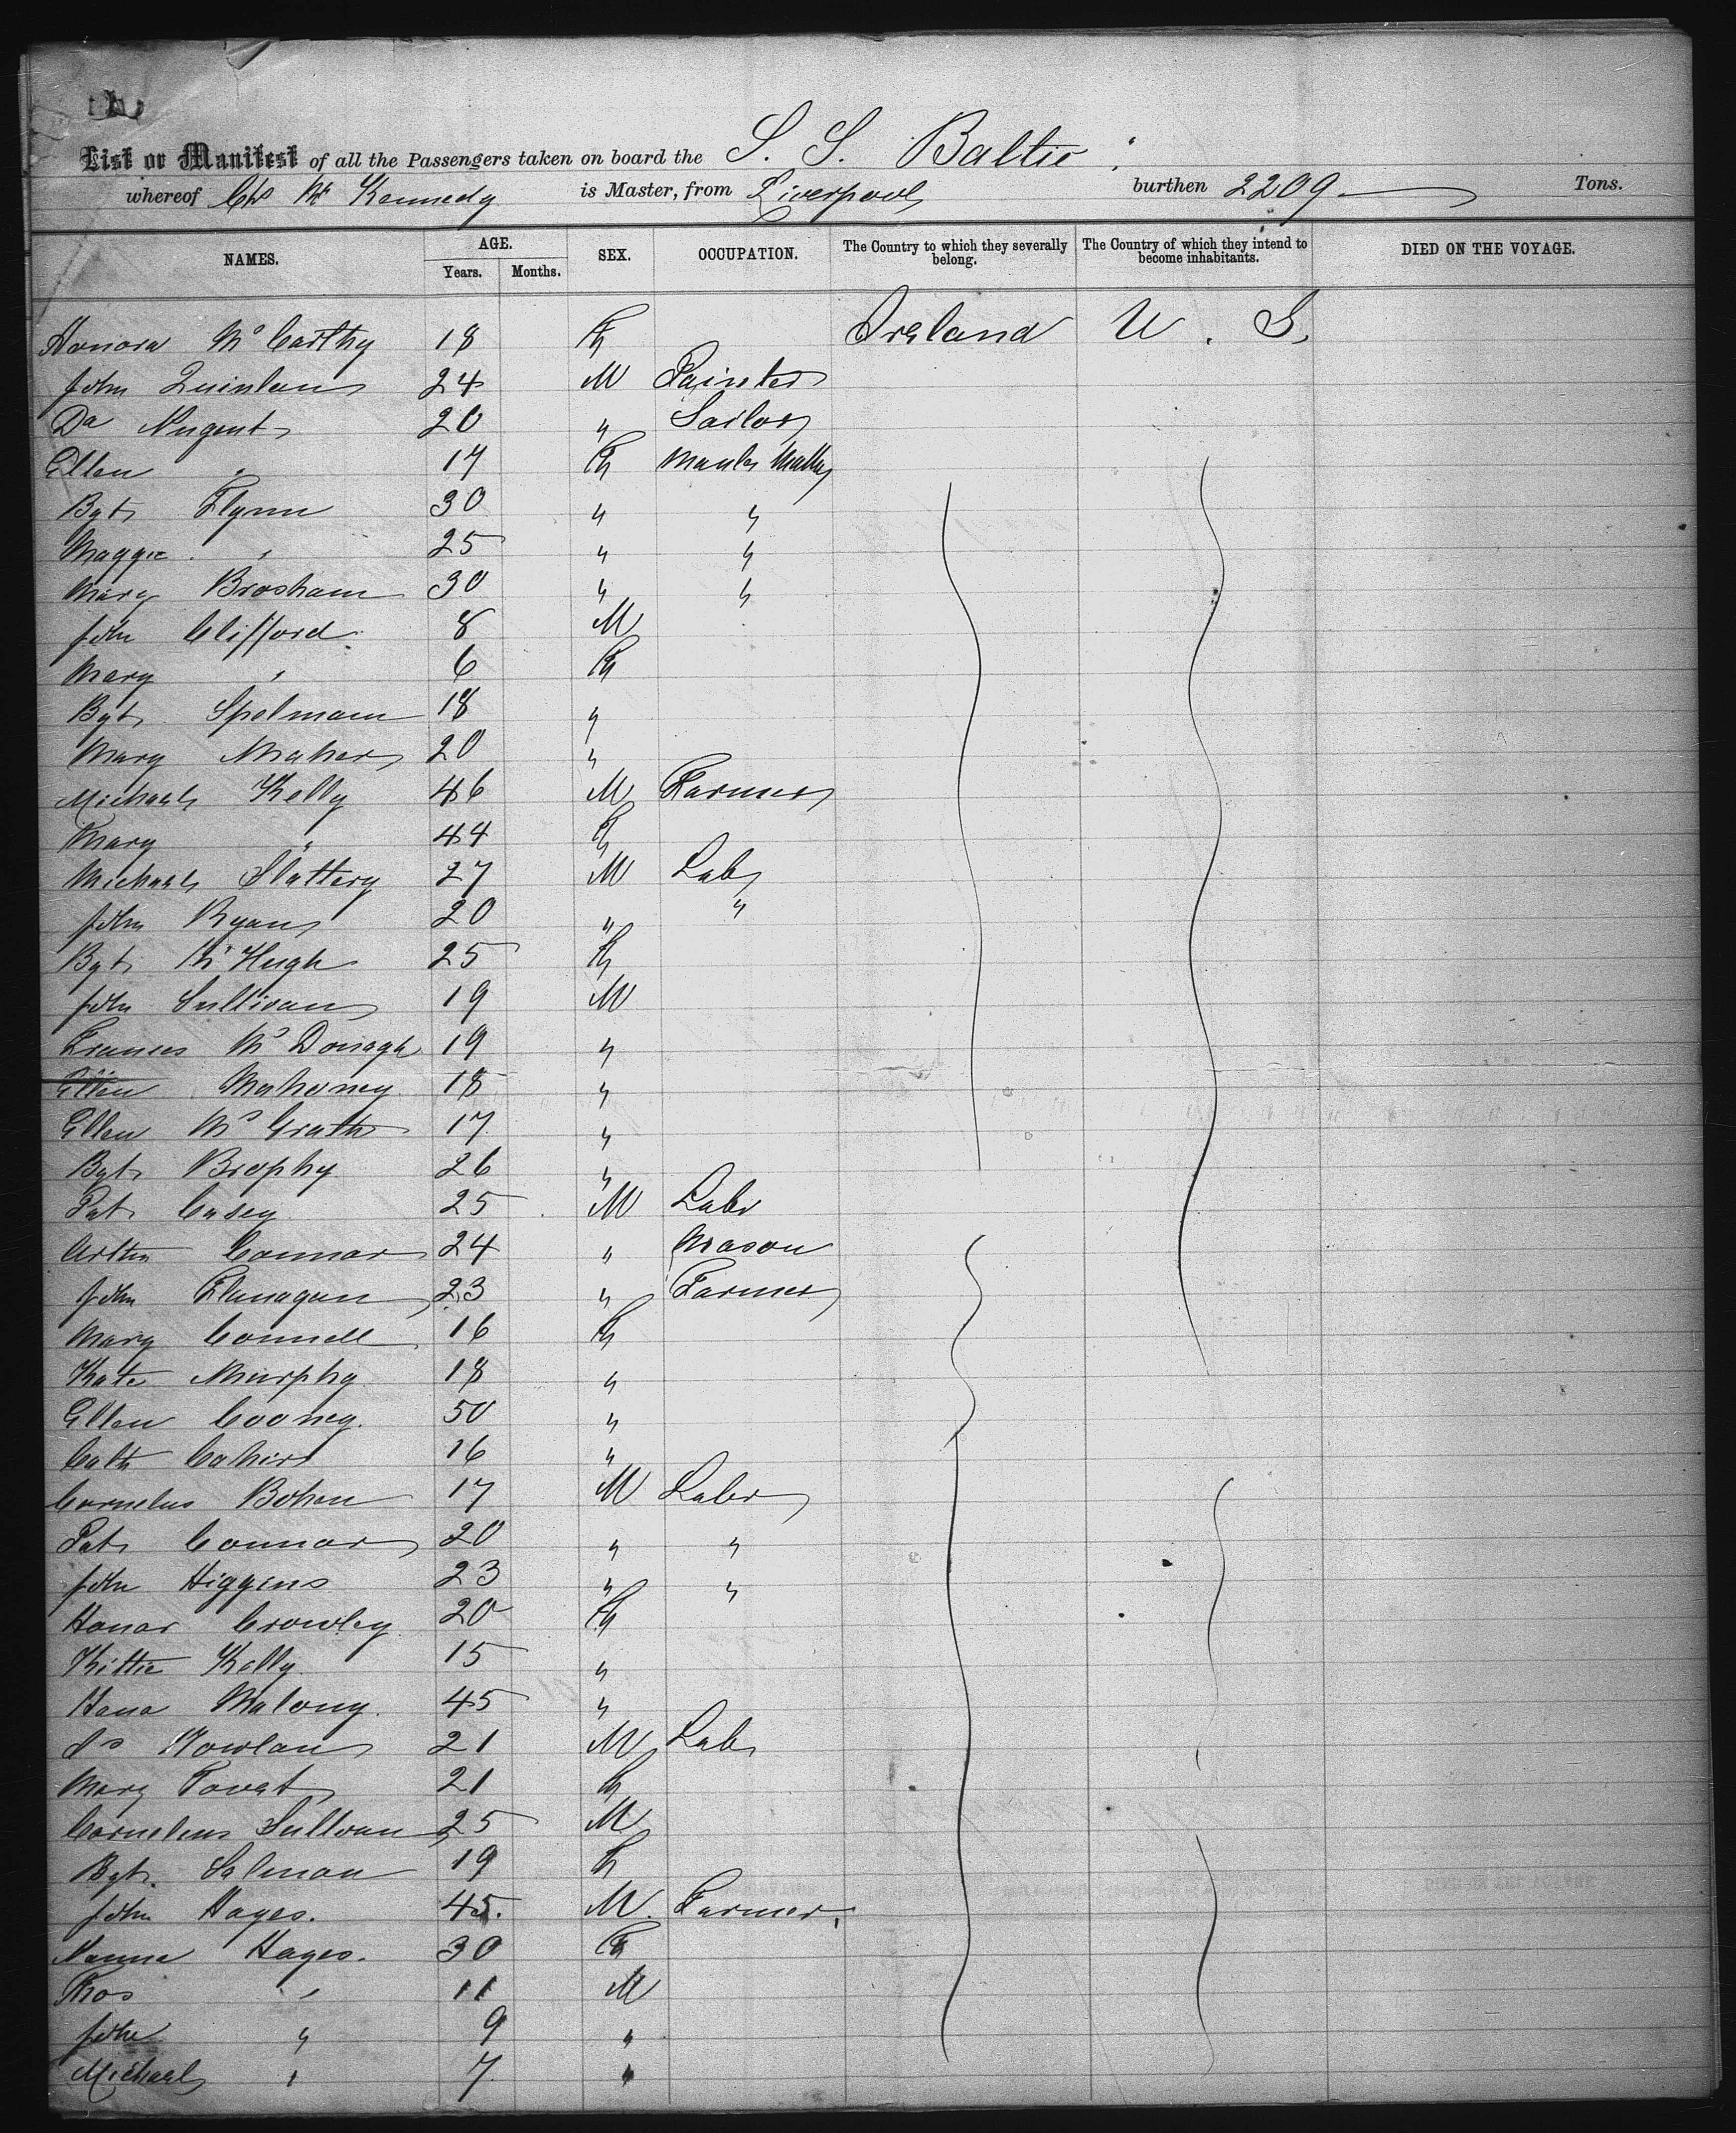 List or Manifest of all the Passengers taken on board the S. S. Baltic
whereof Chs W Kennedy is Master, from Liverpool burthen 2209 Tons.
NAMES. AGE. SEX. OCCUPATION. The Country to which they severally belong. The Country of which they intend to become inhabitants. DIED ON THE VOYAGE.
Years. Months.
Honora McCarthy 18 F Ireland U. S.
John Quinlan 24 M Painter
Da Nugent 20 " Sailor
Ellen " 17 F
Bgt Flynn 30 " "
Maggie " 25 " "
Mary Brosham 30 " "
John Clifford 8 M
Mary " 6 F
Bgt Spelman 18 "
Mary Maher 20 "
Michael Kelly 46 M Farmer
Mary " 44 F
Michael Slattery 27 M Lab
John Ryan 20 " "
Bgt McHugh 25 F
John Sullivan 19 M
Frances McDonagh 19 "
Ellen Mahoney 18 "
Ellen McGrath 17 "
Bgt Brophy 26 "
Pat Casey 25 M Labr
Arthur Connor 24 " Mason
John Flanagan 23 " Farmer
Mary Connell 16 F
Kate Murphy 18 "
Ellen Cooney. 50 "
Cath Cahir 16 "
Cornelus Bohan 17 M Labr
Pat Connor 20 " "
John Higgins 23 " "
Honor Crowley 20 F
Kittie Kelly 15 "
Hana Malony. 45 "
Js Nowlan 21 M Lab
Mary 21 F
Cornelius Sullivan 25 M
Bgt. Salmon 19 F
John Hayes. 45. M. Farmer.
Nanna Hayes. 30 F
Thos " 11 M
John " 9 "
Michael " 7 "